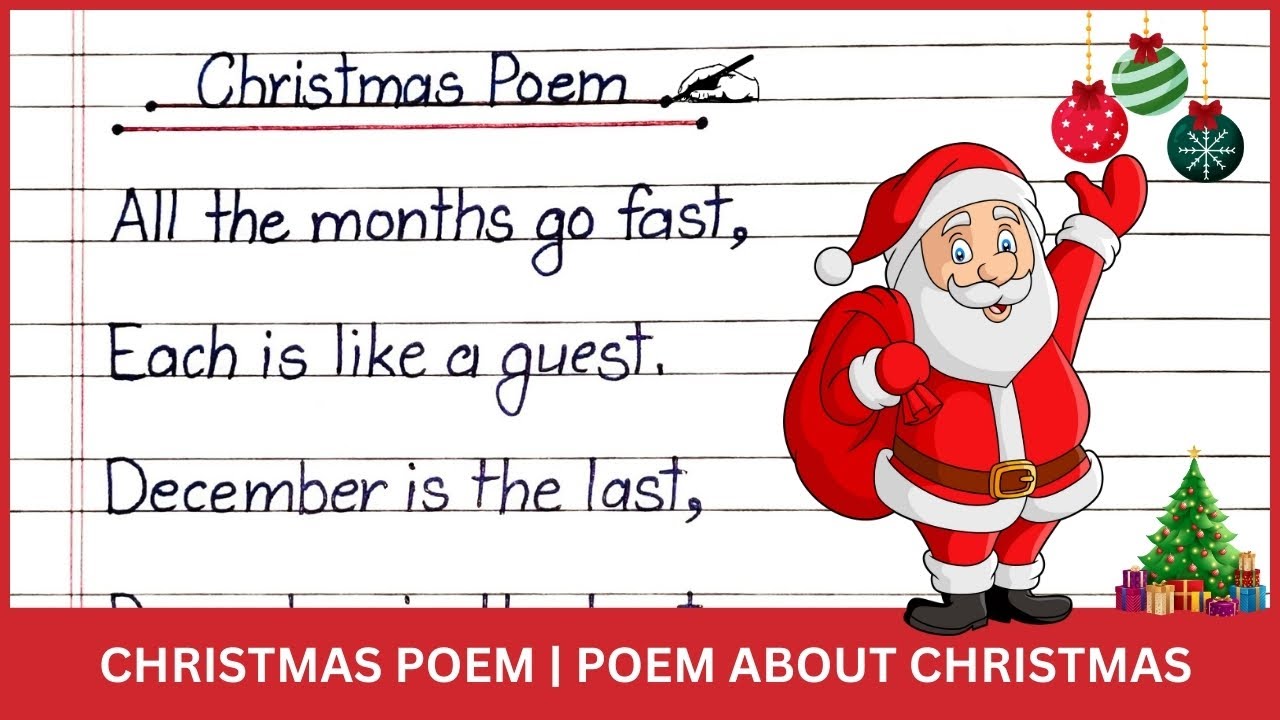 Christmas Poem
All the months go fast,
Each is like a guest.
December is the last,
CHRISTMAS POEM | POEM ABOUT CHRISTMAS